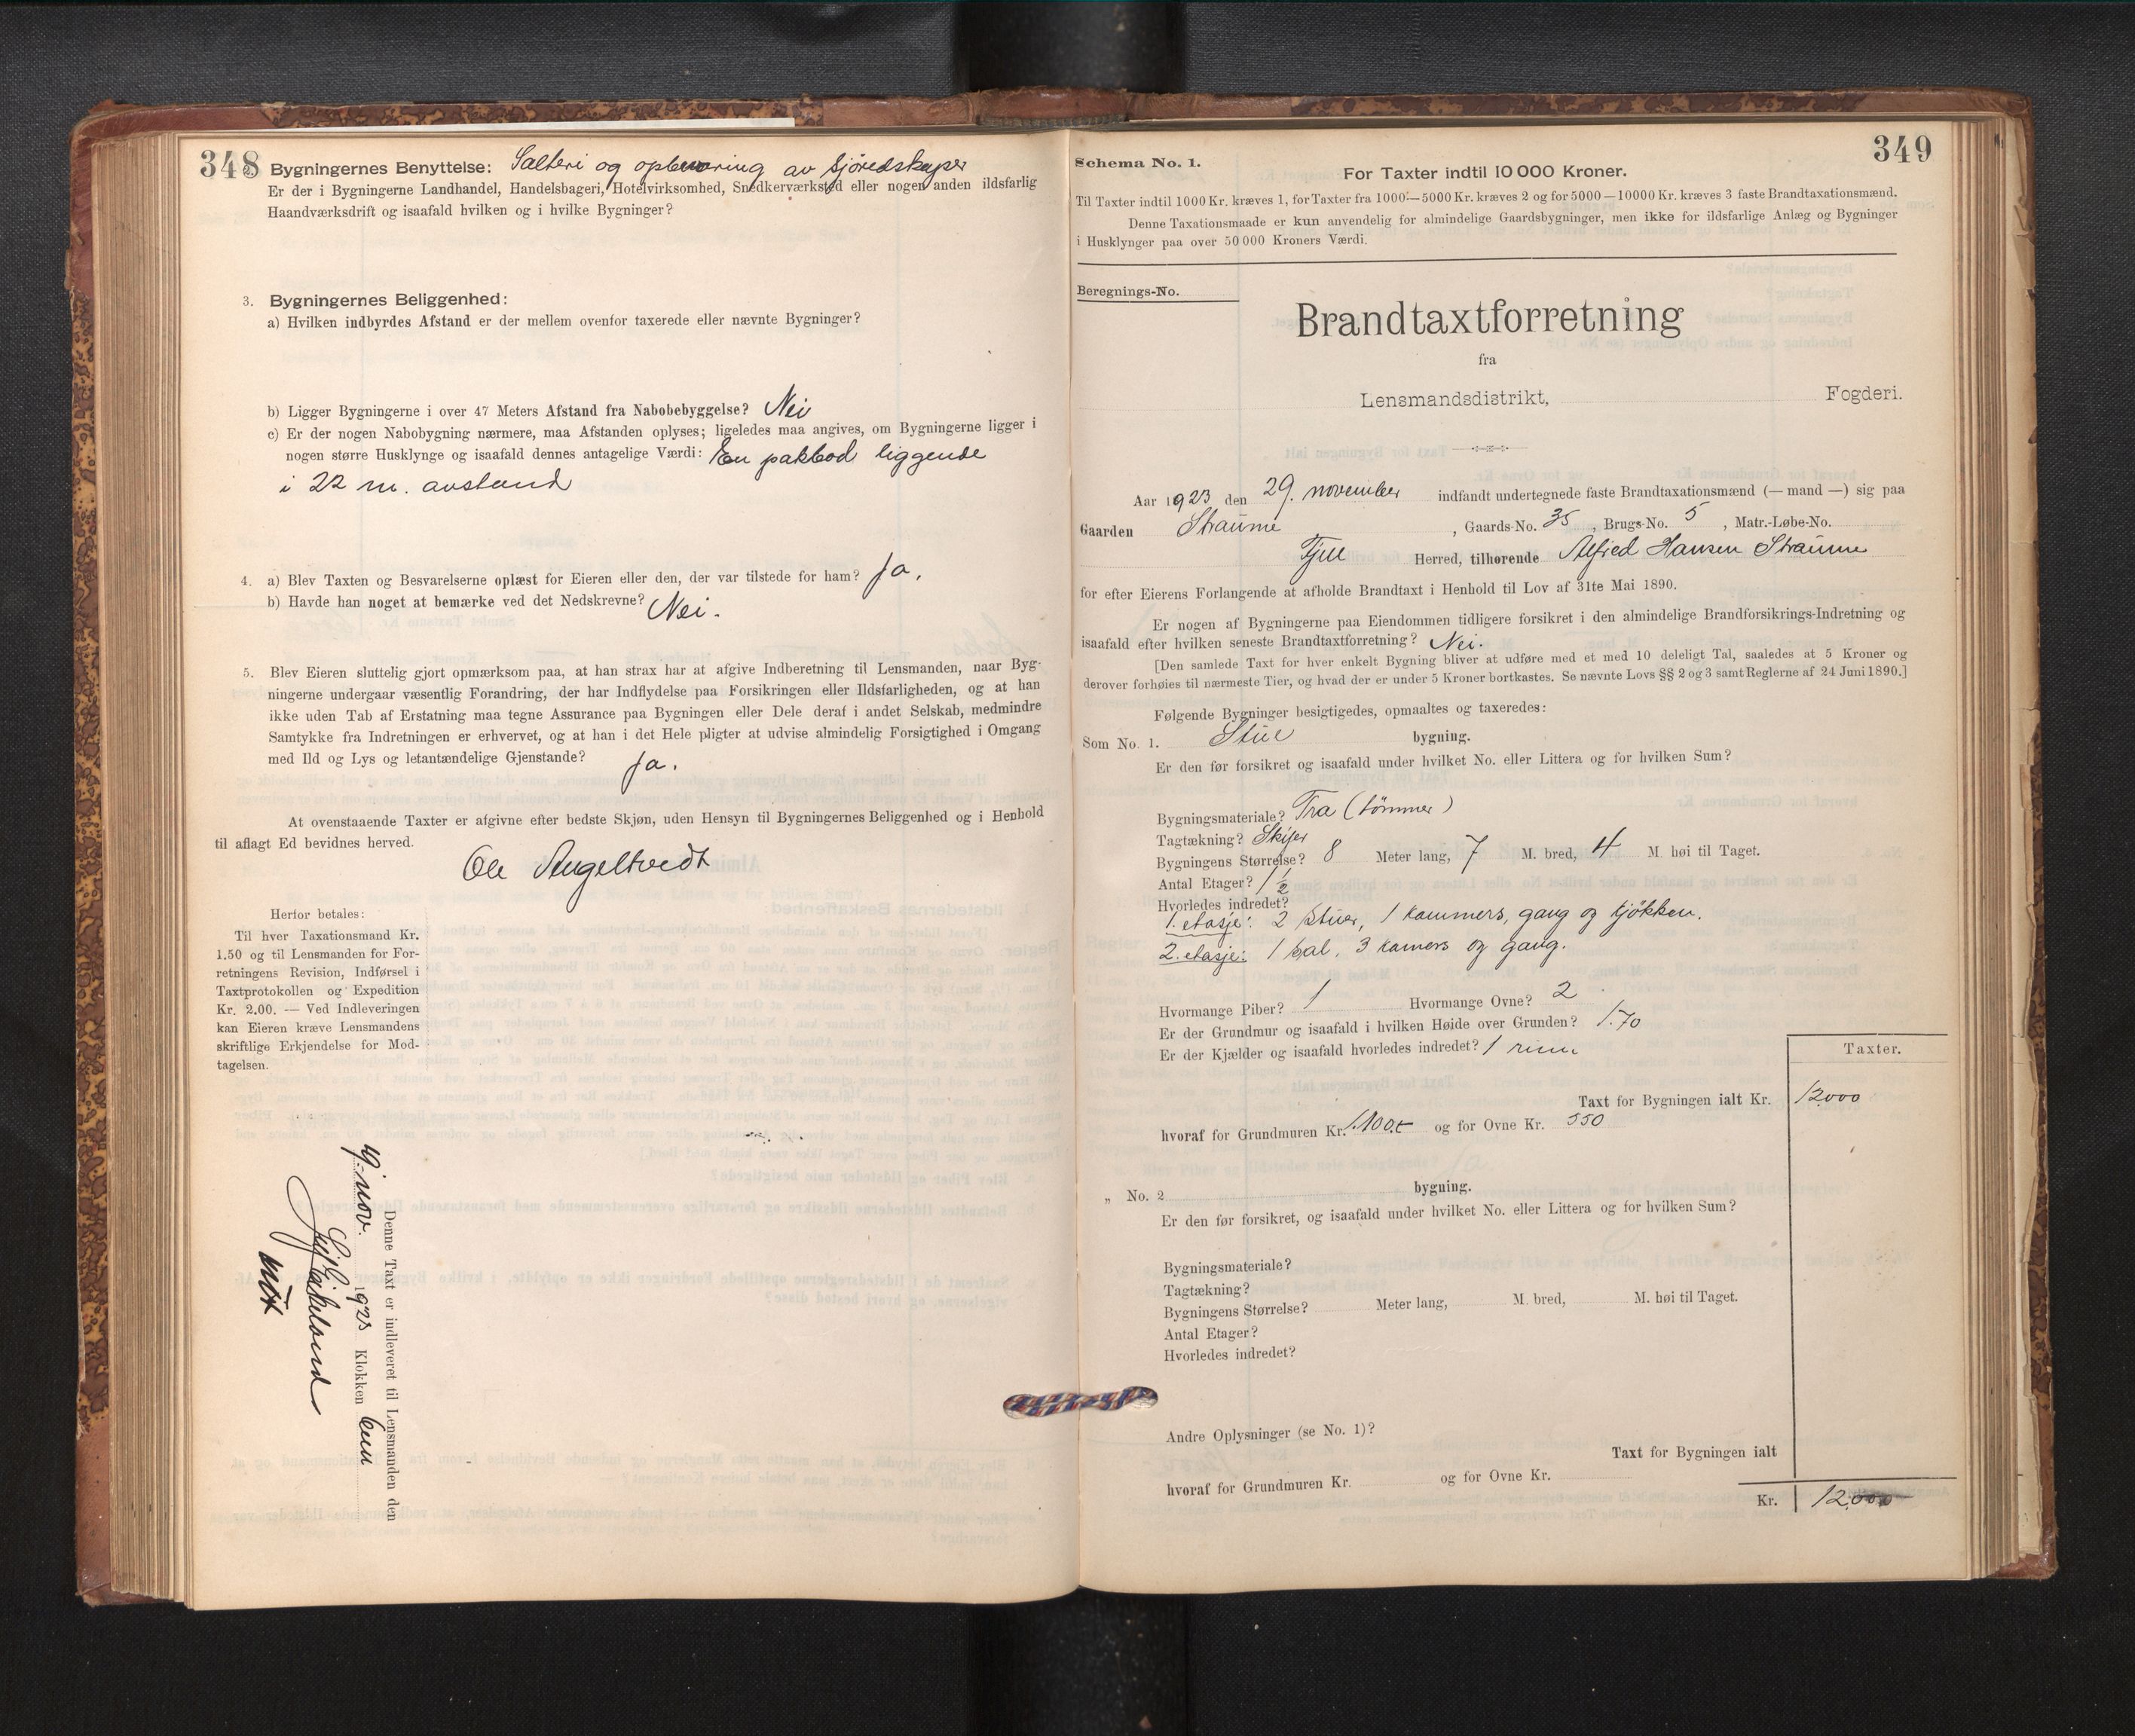 348
Bygningernes Benyttelse: Salteri og opbevaring av sjöredskaper
Er der i Bygningerne Landhandel, Handelsbageri, Hotelvirksomhed, Snedkerværksted eller nogen anden ildsfarlig
Haandværksdrift og isaafald hvilken og i hvilke Bygninger?
3. Bygningernes Beliggenhed:
a) Hvilken indbyrdes Afstand er der mellem ovenfor taxerede eller nævnte Bygninger?
b) Ligger Bygningerne i over 47 Meters Afstand fra Nabobebyggelse? Nei
c) Er der nogen Nabobygning nærmere, maa Afstanden oplyses; ligeledes maa angives, om Bygningerne ligger i
nogen større Husklynge og isaafald dennes antagelige Værdi: En pakbod liggende
i 22 m. avstand
4. a) Blev Taxten og Besvarelserne oplæst for Eieren eller den, der var tilstede for ham? Ja.
b) Havde han noget at bemærke ved det Nedskrevne? Nei.
5. Blev Eieren sluttelig gjort opmærksom paa, at han strax har at afgive Indberetning til Lensmanden, naar Byg-
ningerne undergaar væsentlig Forandring, der har Indflydelse paa Forsikringen eller Ildsfarligheden, og at han
ikke uden Tab af Erstatning maa tegne Assurance paa Bygningen eller Dele deraf i andet Selskab, medmindre
Samtykke fra Indretningen er erhvervet, og at han i det Hele pligter at udvise almindelig Forsigtighed i Omgang
med Ild og Lys og letantændelige Gjenstande? Ja.
At ovenstaaende Taxter er afgivne efter bedste Skjøn, uden Hensyn til Bygningernes Beliggenhed og i Henhold
til aflagt Ed bevidnes herved.
Ole Angeltvedt
Herfor betales:
Til hver Taxationsmand Kr.
1.50 og til Lensmanden for For-
retningens Revision, Indførsel i
Taxtprotokollen og Expedition
Kr. 2.00. — Ved Indleveringen
kan Eieren kræve Lensmandens
skriftlige Erkjendelse for Mod-
tagelsen.
Denne Taxt er indleveret til Lensmanden den
19. nov. 1923 Klokken
349
Schema No. 1.
For Taxter indtil 10 000 Kroner.
Til Taxter indtil 1000 Kr. kræves 1, for Taxter fra 1000—5000 Kr. kræves 2 og for 5000—10000 Kr. kræves 3 faste Brandtaxationsmænd.
Denne Taxationsmaade er kun anvendelig for almindelige Gaardsbygninger, men ikke for ildsfarlige Anlæg og Bygninger
i Husklynger paa over 50 000 Kroners Værdi.
Beregnings-No.
Brandtaxtforretning
fra
Lensmandsdistrikt, Fogderi.
Aar 1923 den 29. november indfandt undertegnede faste Brandtaxationsmænd (— mand —) sig paa
Gaarden Straume, Gaards-No. 35, Brugs-No. 5, Matr.-Løbe-No.
Fjell Herred, tilhørende Alfred Hansen Straume
for efter Eierens Forlangende at afholde Brandtaxt i Henhold til Lov af 31te Mai 1890.
Er nogen af Bygningerne paa Eiendommen tidligere forsikret i den almindelige Brandforsikrings-Indretning og
isaafald efter hvilken seneste Brandtaxtforretning? Nei.
[Den samlede Taxt for hver enkelt Bygning bliver at udføre med et med 10 deleligt Tal, saaledes at 5 Kroner og
derover forhøies til nærmeste Tier, og hvad der er under 5 Kroner bortkastes. Se nævnte Lovs §§ 2 og 3 samt Reglerne af 24 Juni 1890.]
Følgende Bygninger besigtigedes, opmaaltes og taxeredes:
Som No. 1. Stue bygning.
Er den før forsikret og isaafald under hvilket No. eller Littera og for hvilken Sum?
Bygningsmateriale? Træ (tömmer)
Tagtækning? Skifer
Bygningens Størrelse? 8 Meter lang, 7 M. bred, 4 M. høi til Taget.
Antal Etager? 1 1/2
Hvorledes indredet?
1. etasje: 2 stuer, 1 kammers, gang og kjökken.
2. etasje: 1 sal, 3 kamers og gang.
Hvormange Piber? 1 Hvormange Ovne? 2
Er der Grundmur og isaafald i hvilken Høide over Grunden? 1.70
Er der Kjælder og isaafald hvorledes indredet? 1 rum
Taxter.
Taxt for Bygningen ialt Kr. 12000
hvoraf for Grundmuren Kr. 1.100.- og for Ovne Kr. 550
„ No. 2 bygning.
Er den før forsikret, og isaafald under hvilket No. eller Littera og for hvilken Sum?
Bygningsmateriale?
Tagtækning?
Bygningens Størrelse? Meter lang, M. bred, M. høi til Taget.
Antal Etager?
Hvorledes indredet?
Andre Oplysninger (se No. 1)?
Taxt for Bygningen ialt
hvoraf for Grundmuren Kr. og for Ovne Kr.
Kr. 12.000